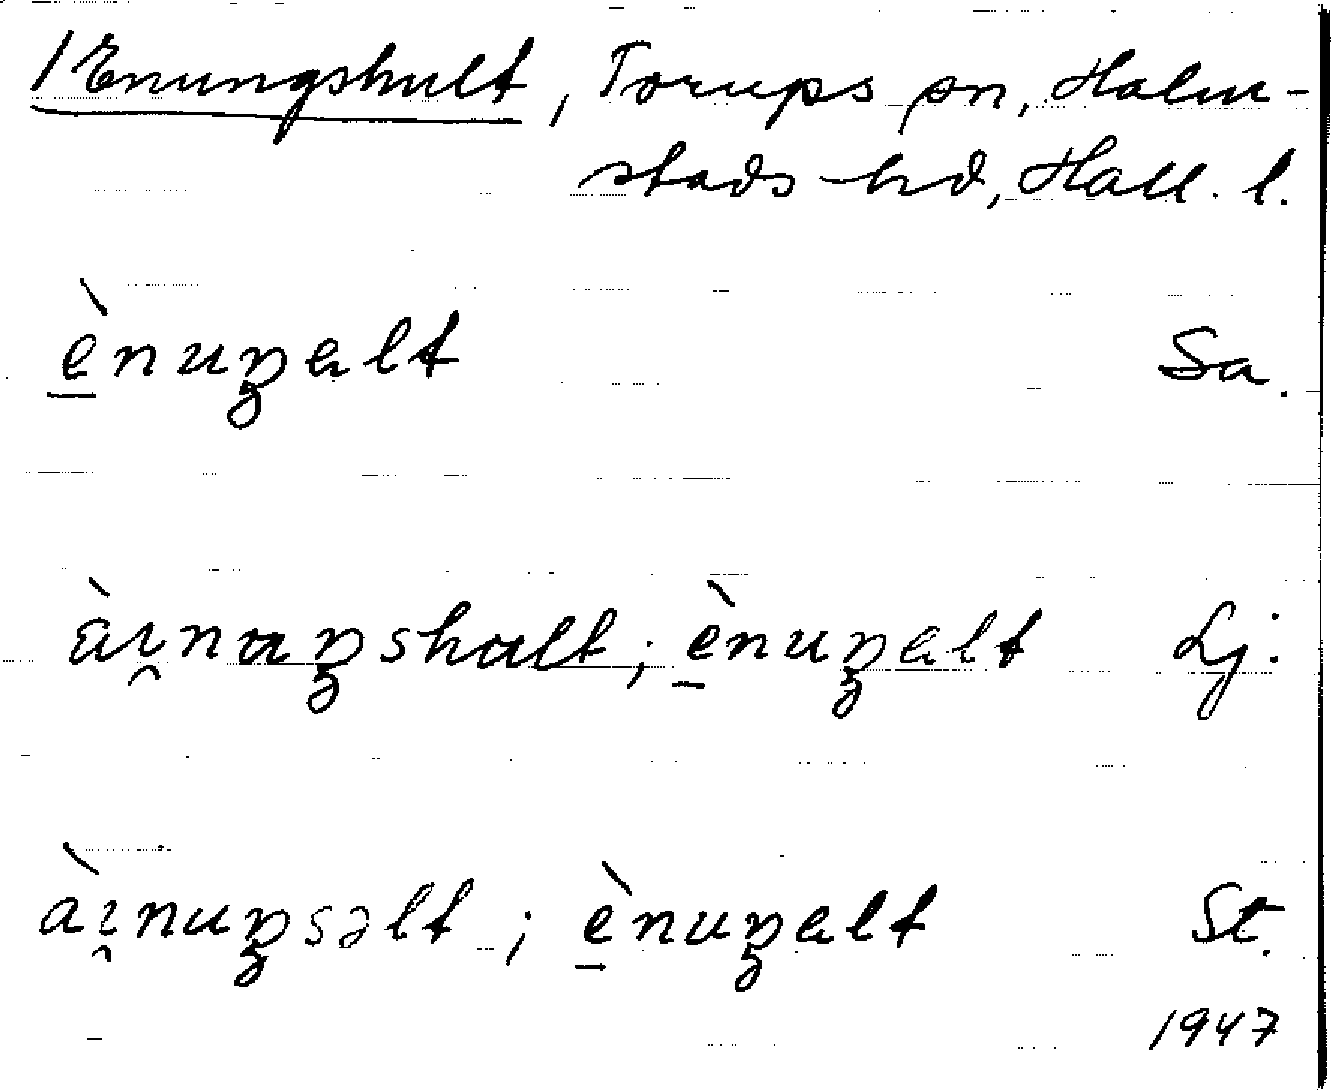 /Enungshult, Torups sn, Halm-
stads hd, Hall. l.
è̱nuŋɐlt Sa.
àı̯nɑŋshɑlt; è̱nuŋɐlt Lj.
àı̯nuŋsəlt; è̱nuŋɐlt St.
1947